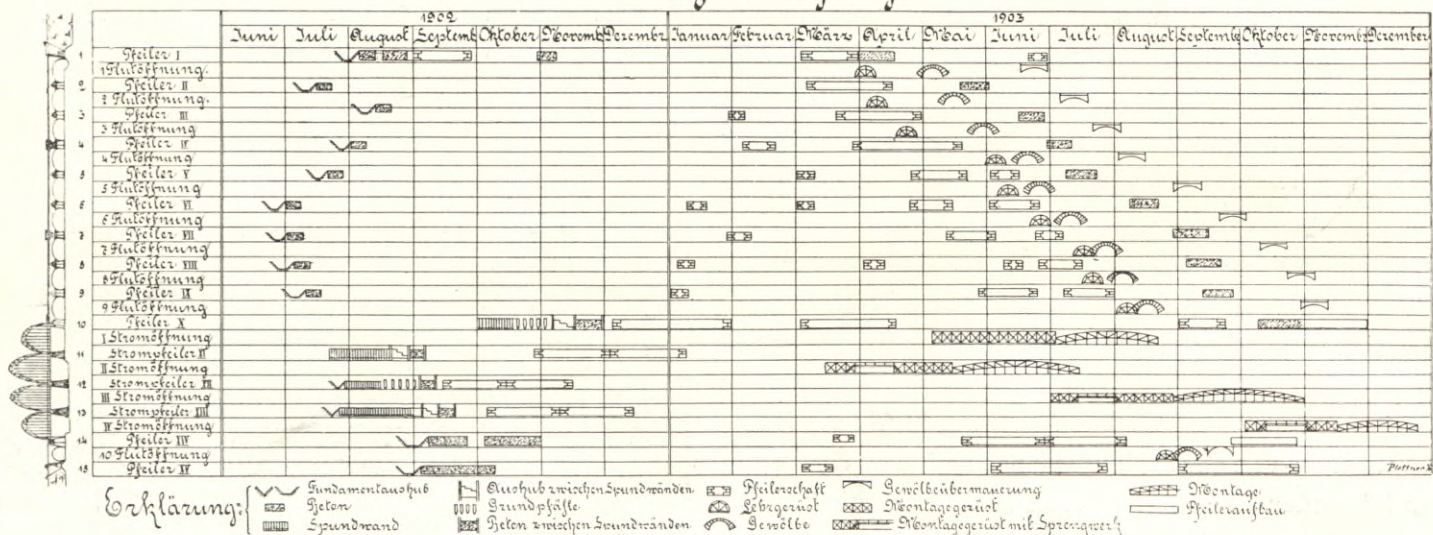 1902 1903
Juni Juli August Septemb Oktober Novemb Dezembr Januar Februar März April Mai Juni Juli August Septemb Oktober Novemb Dezember
1 Pfeiler I
1 Flutöffnung.
2 Pfeiler II
2 Flutöffnung.
3 Pfeiler III
3 Flutöffnung
4 Pfeiler IV
4 Flutöffnung
5 Pfeiler V
5 Flutöffnung
6 Pfeiler VI
6 Flutöffnung
7 Pfeiler VII
7 Flutöffnung
8 Pfeiler VIII
8 Flutöffnung
9 Pfeiler IX
9 Flutöffnung
10 Pfeiler X
I Stromöffnung
11 Strompfeiler XI
II Stromöffnung
12 Strompfeiler XII
III Stromöffnung
13 Strompfeiler XIII
IV Stromöffnung
14 Pfeiler XIV
10 Flutöffnung
15 Pfeiler XV
Erklärung:
Fundamentaushub Aushub zwischen Spundwänden Pfeilerschaft Gewölbeübermauerung Montage
Beton Grundpfähle Lehrgerüst Montagegerüst Pfeileraufbau
Spundwand Beton zwischen Spundwänden Gewölbe Montagegerüst mit Sprengwerk